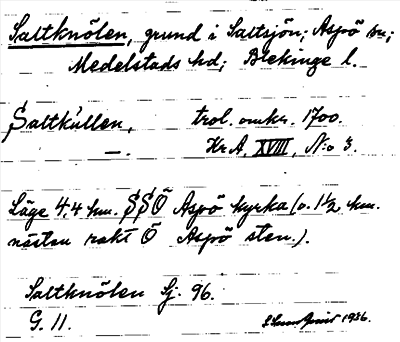 Saltknölen, grund i Saltsjön; Aspö sn;
Medelstads hd; Blekinge l.
Saltkullen, trol. omkr. 1700.
—. Kr A, XVIII, N:o 3.
Läge 4,4 km. SSÖ Aspö kyrka (o. 1½ km.
nästan rakt Ö Aspö sten.).
Saltknölen Sj. 96.
G. 11.
1936.